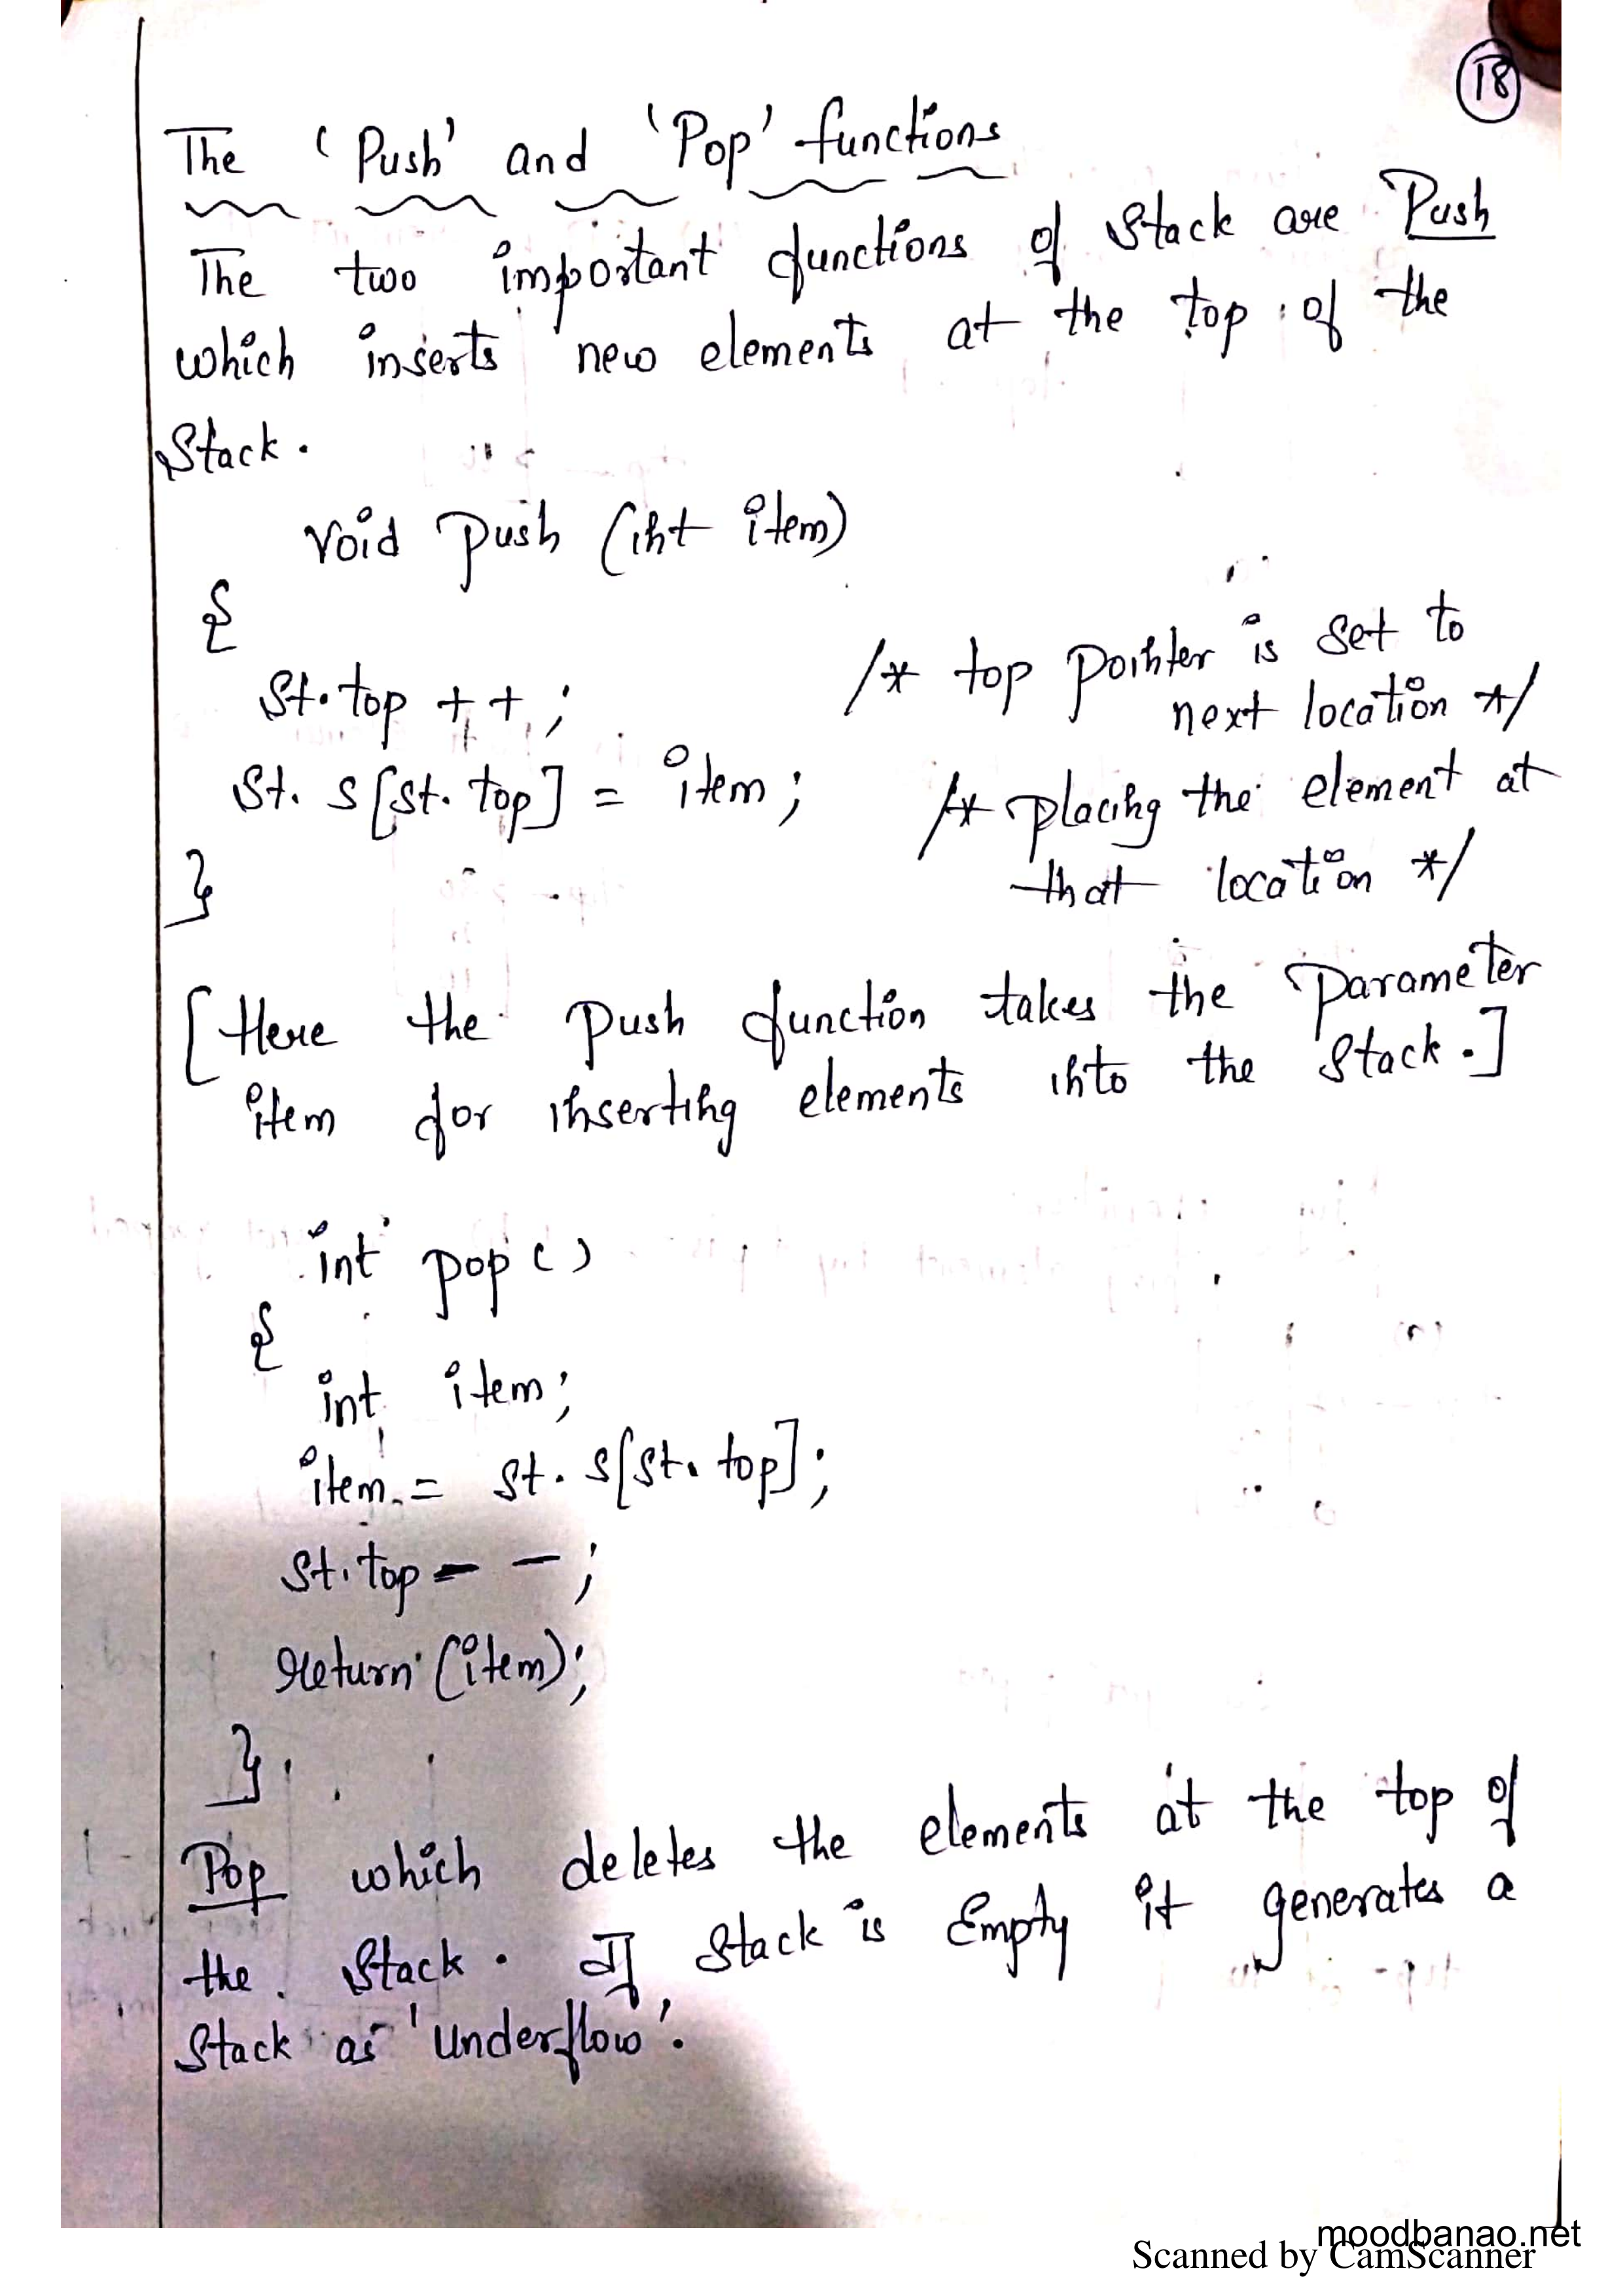 18
The 'Push' and 'Pop' functions
The two important functions of Stack are Push
which inserts new elements at the top of the
Stack.
Void Push (int item)
{
St.top ++; /* top pointer is set to
next location */
St. s[st. top] = item; /* placing the element at
that location */
}
[Here the Push function takes the Parameter
item for inserting elements into the Stack.]
int pop()
{
int item;
item = St. s[st. top];
St.top - -;
return (item);
}
Pop which deletes the elements at the top of
the Stack. If Stack is Empty it generates a
Stack as 'Underflow'.
moodbanao.net
Scanned by CamScanner